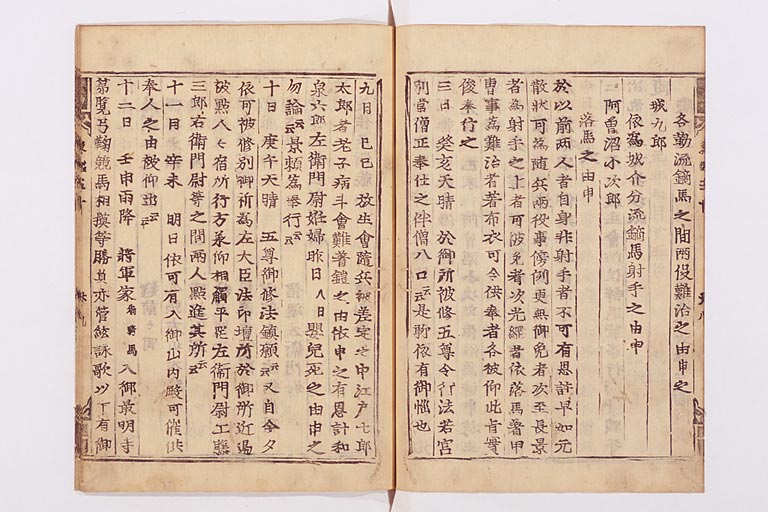 各勤流鏑馬之間両役難治之由申之
城九郎
依為城介分流鏑馬射手之由申
阿曽沼小次郎
落馬之由申
於以前両人者自身非射手者不可有恩許早如元
散状可為随兵両役事傍例更無御免者次至長景
者為射手之上者可被免者次光綱者依落馬著甲
冑事為難治者著布衣可令供奉者各被仰此旨實
俊奉行之
三日 癸亥天晴 於御所被修五尊令行法若宮
別當僧正奉仕之伴僧八口云云是聊依有御悩也
九日 己巳 放生會随兵被差定之中江戸七郎
太郎者老子病斗會難著鎧之由依申之有恩許和
泉六郎左衛門尉妊婦昨日八日嬰兒死之由申之
勿論云云景頼為奉行云云
十日 庚午天晴 五尊御修法鎮願云云又自今夕
依可被修別御祈為左大臣法印壇所於御所近邊
被點人々宿所行方承仰相觸平岡左衛門尉工藤
三郎右衛門尉等之間両人點進其所云云
十一日 辛未 明日依可有入御山内殿可催供
奉人之由被仰出云云
十二日 壬申雨降 將軍家御騎馬入御最明寺
第覧弓鞠競馬相撲等勝負亦管絃詠歌以下有御